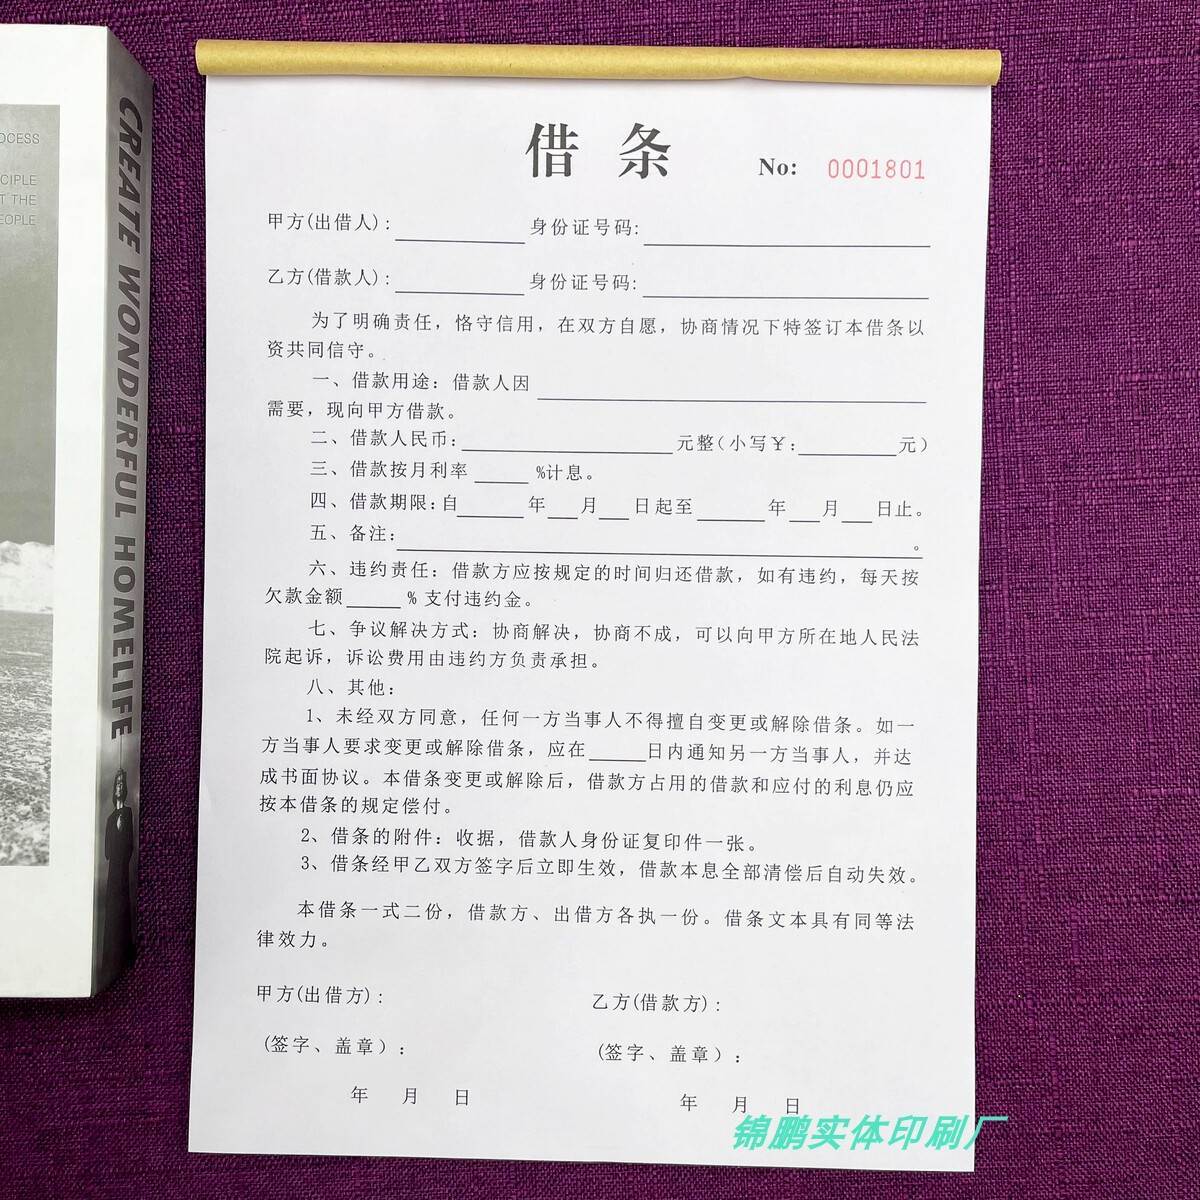 OCESS
CIPLE
T THE
EOPLE
CREATE WONDERFUL HOMELIFE
借条
No: 0001801
甲方(出借人): ________ 身份证号码: ________
乙方(借款人): ________ 身份证号码: ________
为了明确责任，恪守信用，在双方自愿，协商情况下特签订本借条以
资共同信守。
一、借款用途：借款人因 ________
需要，现向甲方借款。
二、借款人民币：________元整(小写￥:________元)
三、借款按月利率 ____ %计息。
四、借款期限:自____年__月__日起至____年__月__日止。
五、备注:________。
六、违约责任：借款方应按规定的时间归还借款，如有违约，每天按
欠款金额____%支付违约金。
七、争议解决方式：协商解决，协商不成，可以向甲方所在地人民法
院起诉，诉讼费用由违约方负责承担。
八、其他：
1、未经双方同意，任何一方当事人不得擅自变更或解除借条。如一
方当事人要求变更或解除借条，应在____日内通知另一方当事人，并达
成书面协议。本借条变更或解除后，借款方占用的借款和应付的利息仍应
按本借条的规定偿付。
2、借条的附件：收据，借款人身份证复印件一张。
3、借条经甲乙双方签字后立即生效，借款本息全部清偿后自动失效。
本借条一式二份，借款方、出借方各执一份。借条文本具有同等法
律效力。
甲方(出借方): 乙方(借款方):
(签字、盖章）： (签字、盖章）：
年 月 日 年 月 日
锦鹏实体印刷厂